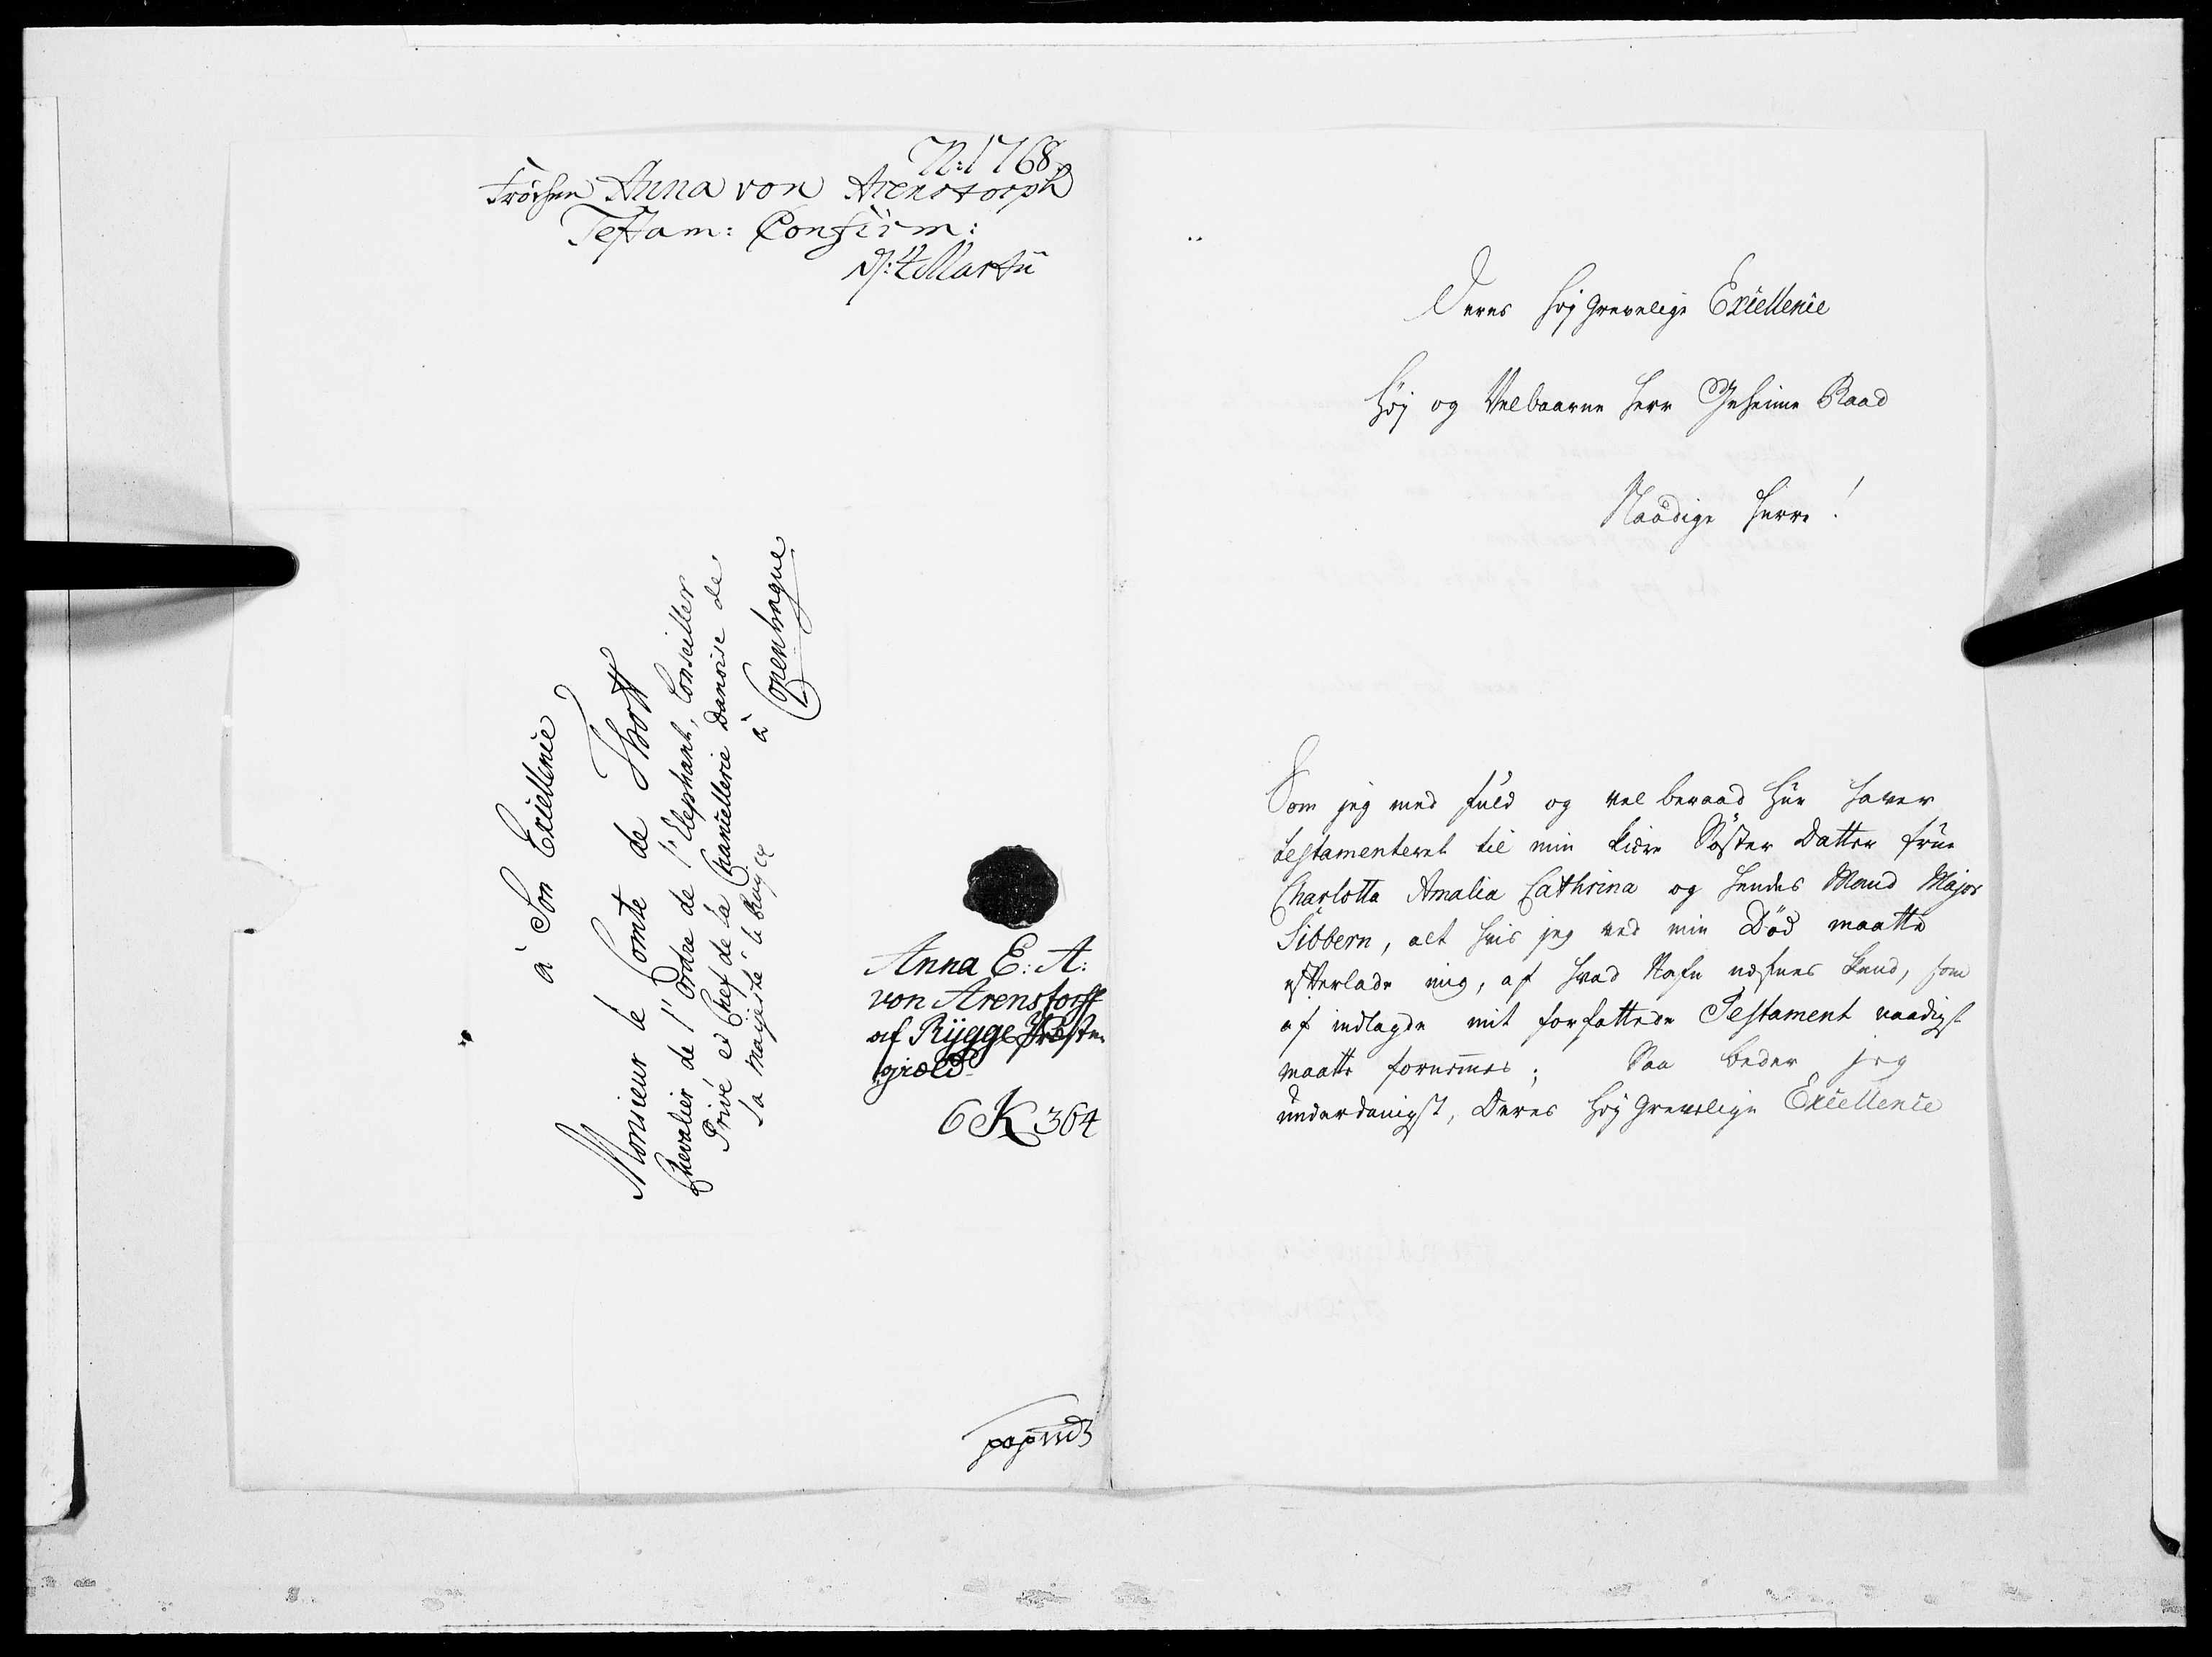 N: 1768.
Frøchen Anna von Arenstorph
Testam: Confirm:
d: 4 Martii
à Son Excellence
Monsieur le Comte de Thott
Chevalier de l'Ordre de l'Elephant, Conseiller
Privé et Chef de la Chancellerie Danoise de
Sa Majesté le Roy &
à Copenhague
Anna E: A:
von Arenstorff
af Rÿgge Præste-
giæld
6 K 364
Deres høj Grevelige Excellence
Høj og Velbaarne Herr Geheime Raad
Naadige Herre!
Som jeg med fuld og vel beraad Hue haver
testamenteret til min kiære Søster Datter frue
Charlotta Amalia Cathrina og hendes Mand Major
Sibbern, alt hvis jeg ved min Død maatte
efterlade mig, af hvad Nafn nefnes kand, som
af indlagde mit forfattede Testament naadigst
maatte fornemmes; Saa beder jeg
underdanigst, Deres Høj Grevelige Excellence